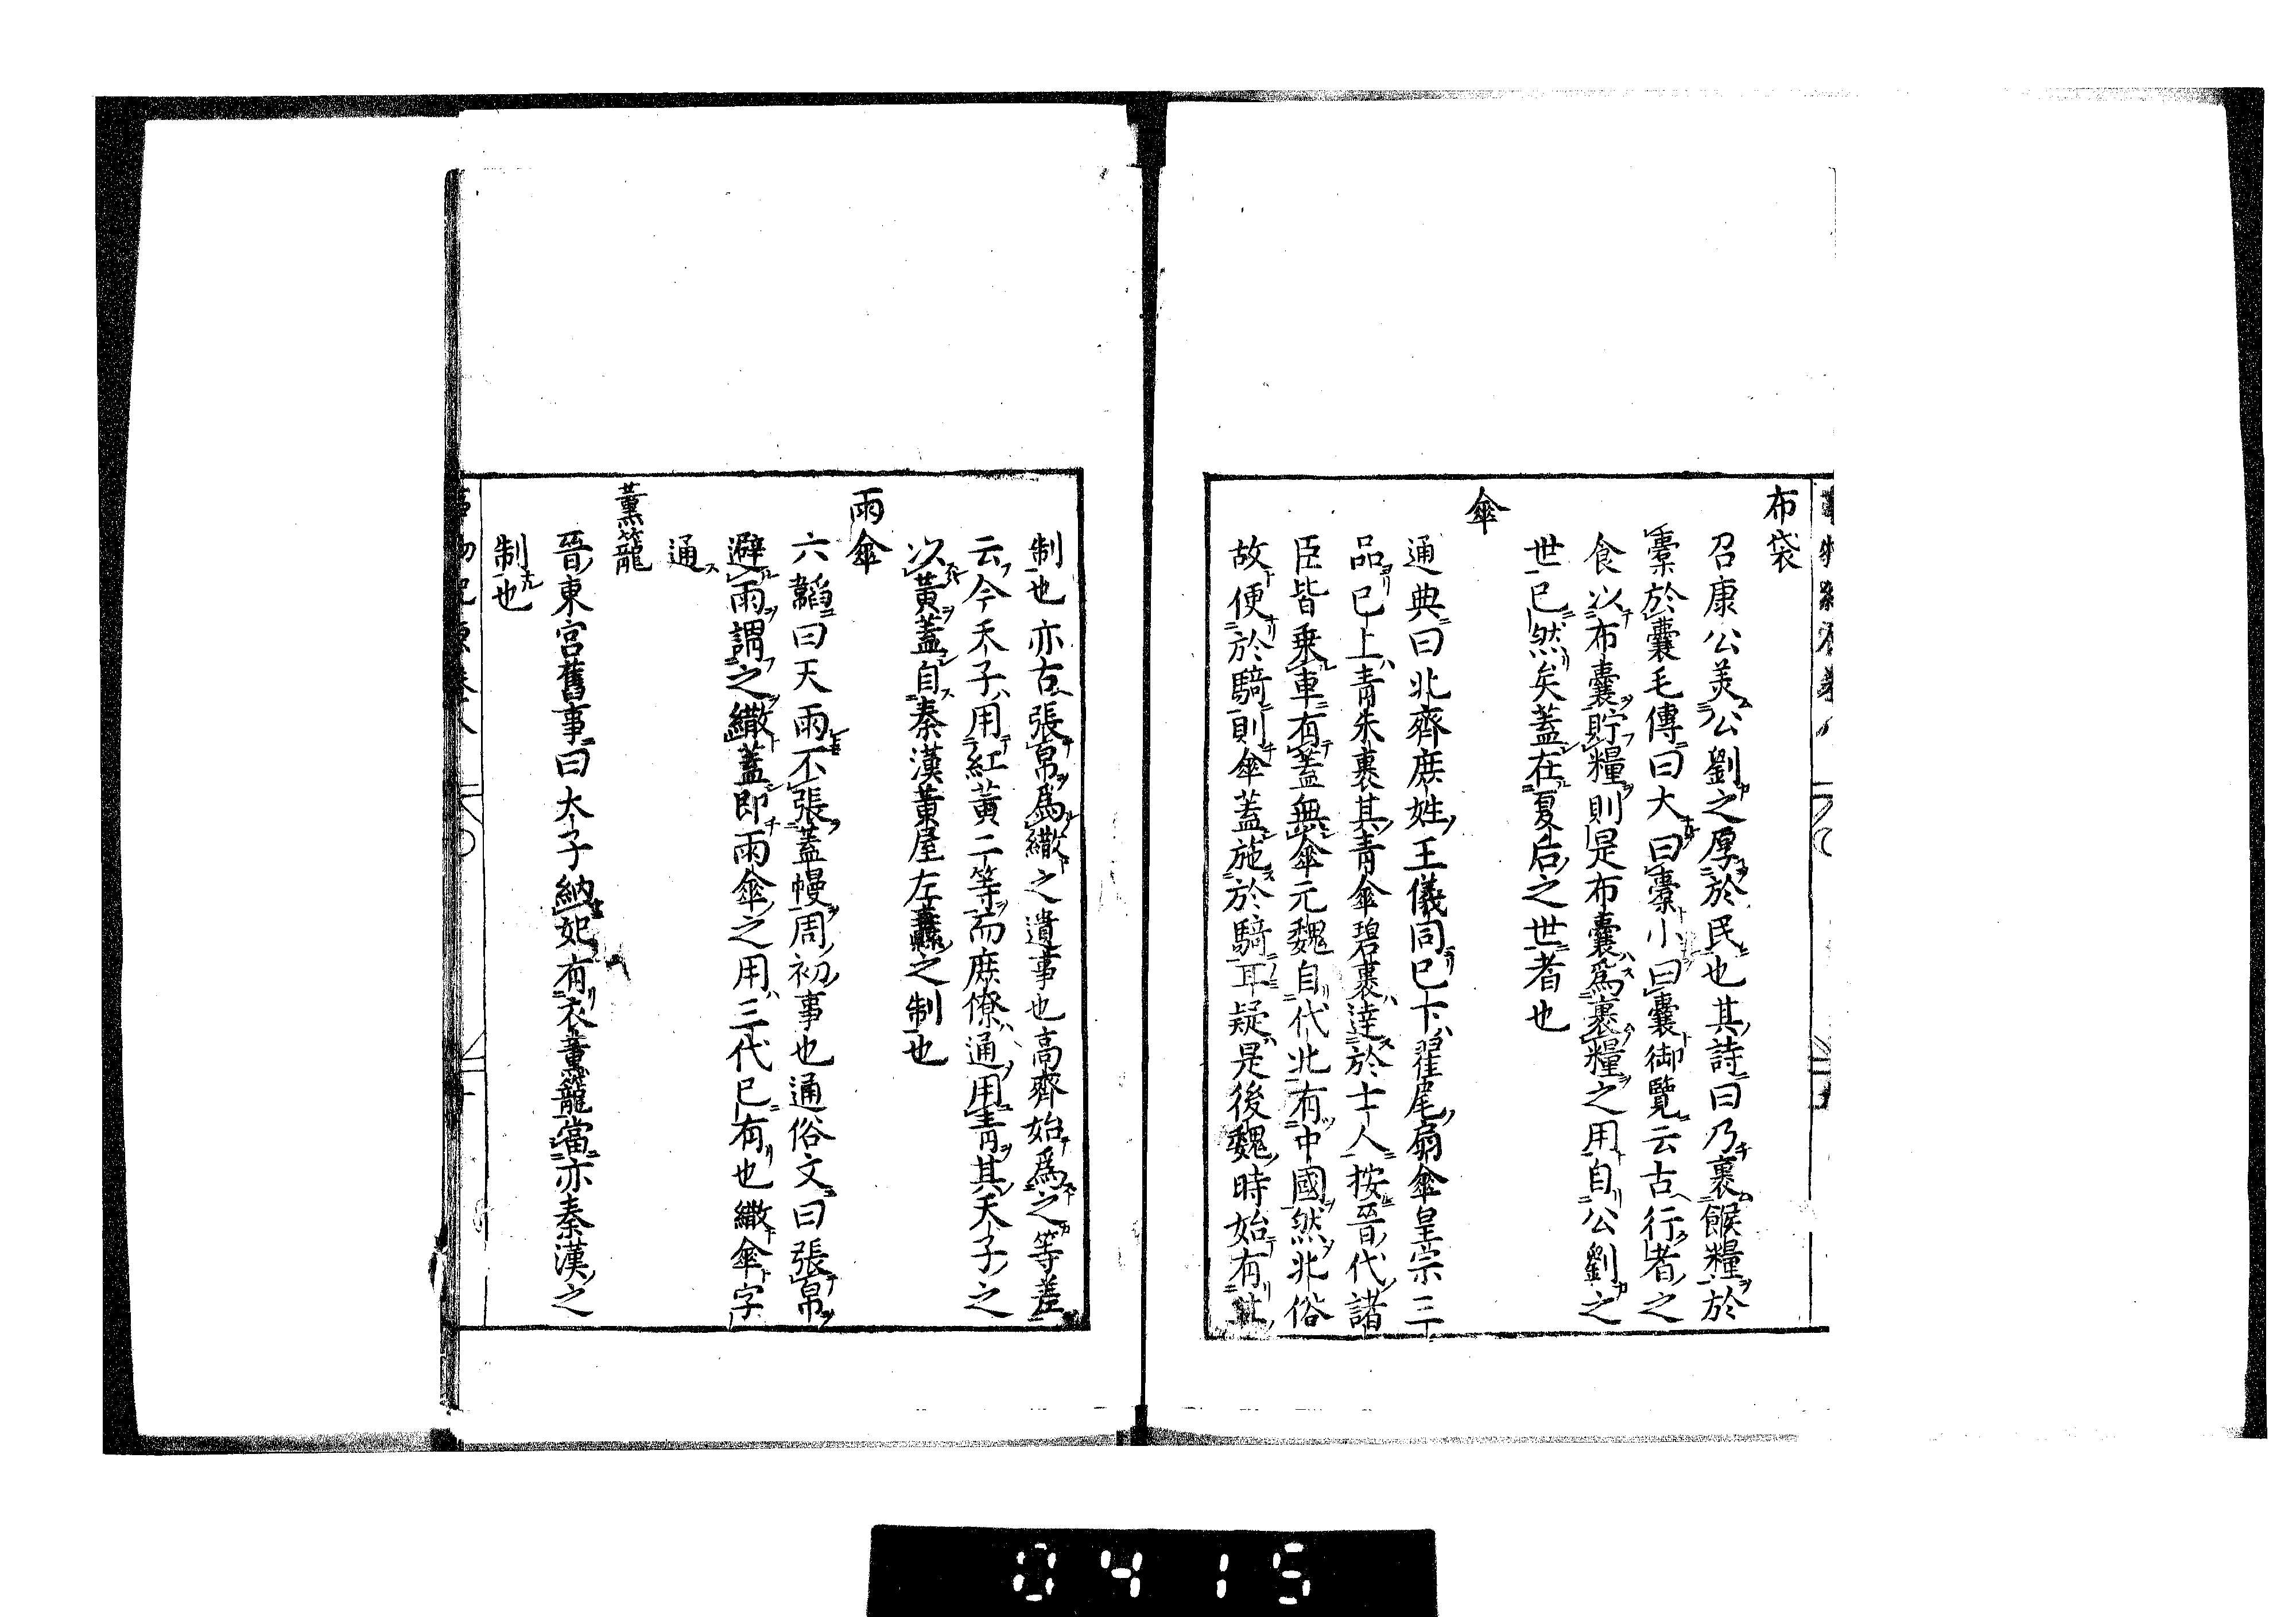 布袋
召康公美公劉之厚於民也其詩曰乃裹餱糧於
橐於囊毛傳曰大曰橐小曰囊御覽云古行者之
食以布囊貯糧則是布囊爲裹糧之用自公劉之
世已然矣蓋在夏后之世者也
傘
通典曰北齊庶姓王儀同已下翟尾扇傘皇宗三
品已上青朱裏其青傘碧裏達於士人按晉代諸
臣皆乗車有蓋無傘元魏自代北有中國然北俗
故便於騎則傘蓋施於騎耳疑是後魏時始有其
制也亦古張帛爲繖之遺事也高齊始爲之等差
云今天子用紅黃二等而庶僚通用青其天子之
以黃蓋自秦漢黃屋左纛之制也
雨傘
六韜曰天雨不張蓋幔周初事也通俗文曰張帛
避雨謂之繖蓋即雨傘之用三代已有也繖傘字
通
薰籠
晉東宮舊事曰太子納妃有衣薰籠當亦秦漢之
制也
事物紀原卷八
0415